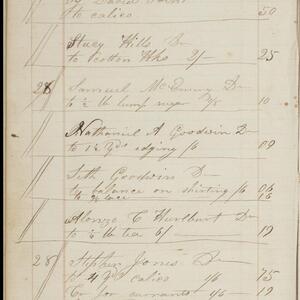 By David
to calico 50
Stacy Hills Dr
to Cotton Whs 2/- 25
28 Samuel McEmery Dr
to ½ lb lump sugar 10
Nathaniel A Goodwin Dr
to 1½ yds edging /6 09
Seth Goodwin Dr
to balance on shirting /6 06
lace 16
Alonzo C Hurlburt Dr
to ½ lb tea 6/ 19
28 Stephen Jones Dr
to 4 yds calico 1/6 75
Cr for currants 1/6 19